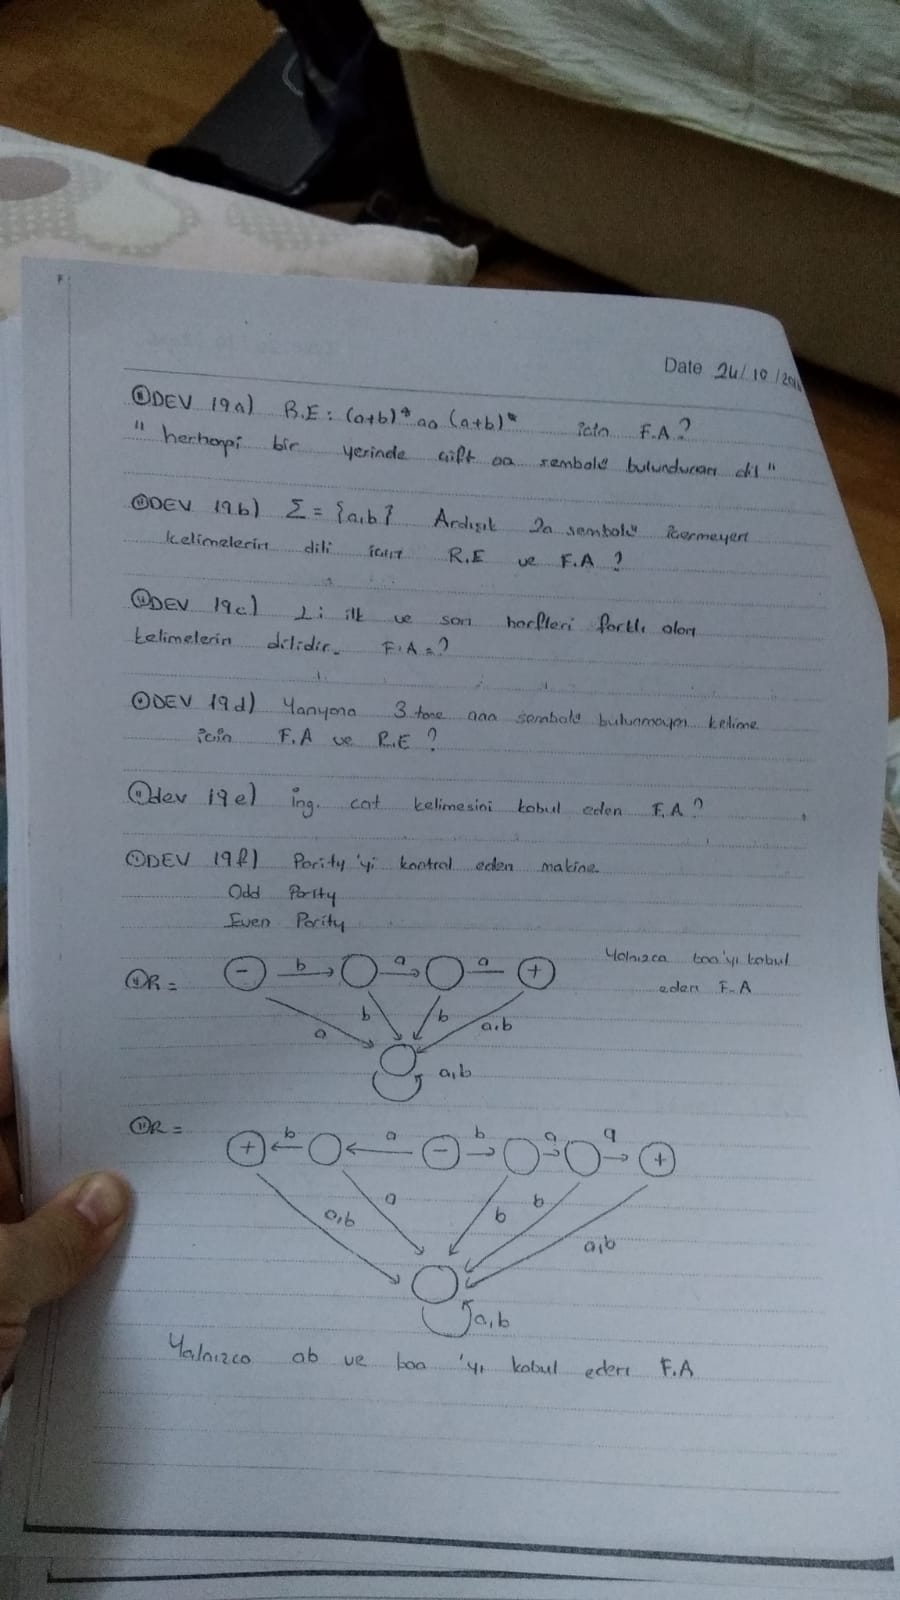 Date 24/10/201
ÖDEV 19a) R.E: (a+b)* aa (a+b)* için F.A?
" herhangi bir yerinde çift aa sembolü bulunduran dil "
ÖDEV 19b) Σ = {a,b} Ardışık 2a sembolü içermeyen
kelimelerin dili için R.E ve F.A ?
ÖDEV 19c) L; ilk ve son harfleri farklı olan
kelimelerin dilidir. F.A = ?
ÖDEV 19d) Yanyana 3 tane aaa sembolü bulunmayan kelime
için F.A ve R.E ?
Ödev 19e) ing. cat kelimesini kabul eden F.A ?
ÖDEV 19f) Parity'yi kontrol eden makine.
Odd Parity
Even Parity
ÖR = - b a a + Yalnızca baa'yı kabul
eden F.A
a b b a,b
a,b
ÖR =
+ b a - b a a +
a,b a b b a,b
a,b
Yalnızca ab ve baa 'yı kabul eden F.A